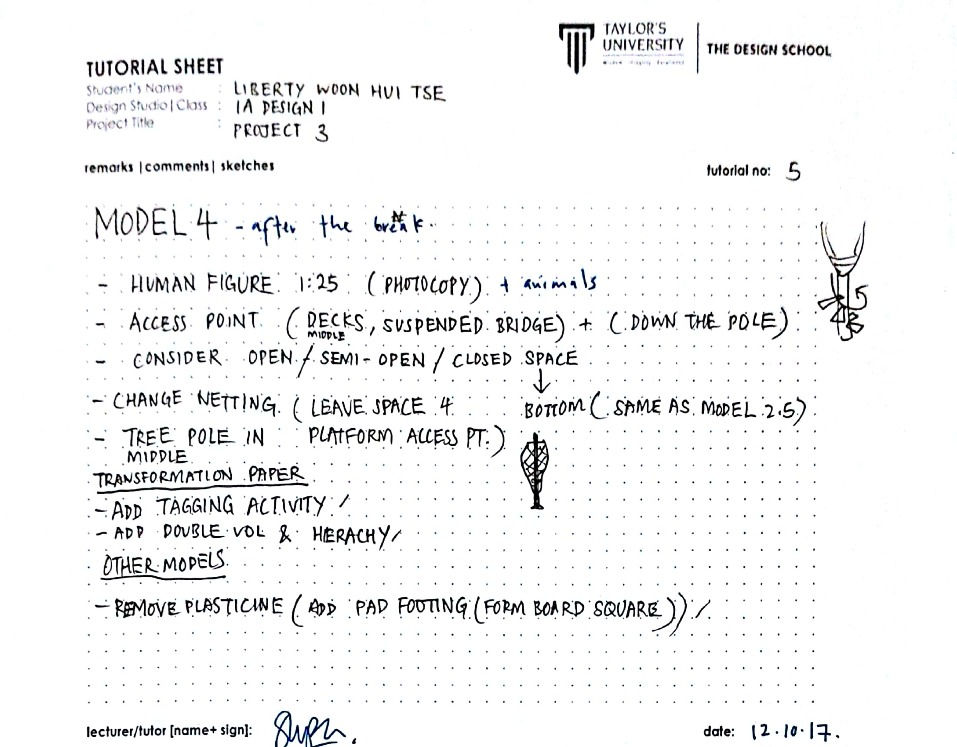 TAYLOR'S
UNIVERSITY
THE DESIGN SCHOOL
TUTORIAL SHEET
Student's Name : LIBERTY WOON HUI TSE
Design Studio|Class : IA DESIGN 1
Project Title : PROJECT 3
remarks |comments| sketches
tutorial no: 5
MODEL 4 - after the break.
- HUMAN FIGURE 1:25 (PHOTOCOPY) + animals
- ACCESS POINT (DECKS, SUSPENDED BRIDGE) + (DOWN THE POLE)
MIDDLE
- CONSIDER OPEN / SEMI-OPEN / CLOSED SPACE
- CHANGE NETTING (LEAVE SPACE 4 BOTTOM (SAME AS MODEL 2.5)
- TREE POLE IN PLATFORM ACCESS PT.)
MIDDLE
TRANSFORMATION PAPER
- ADD TAGGING ACTIVITY /
- ADD DOUBLE VOL & HERACHY /
OTHER MODELS
- REMOVE PLASTICINE (ADD PAD FOOTING (FORM BOARD SQUARE)) /
lecturer/tutor [name+ sign]:
date: 12.10.17.